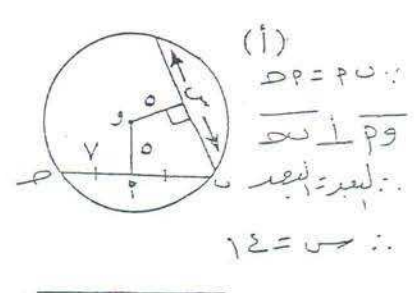 (أ)
∵ ب م = م ح
و م ⊥ ب ح
∴ البعد = البعد
∴ س = ١٤
س
٥
و
٥
٧
ح
م
ب